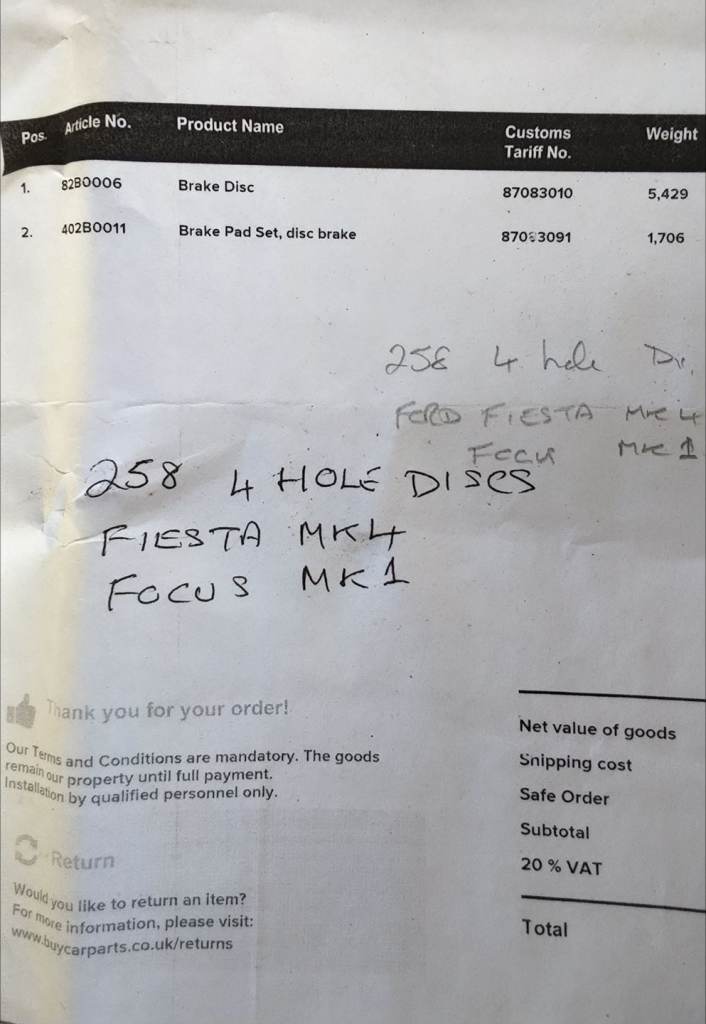 Pos. Article No. Product Name Customs Tariff No. Weight
1. 82B0006 Brake Disc 87083010 5,429
2. 402B0011 Brake Pad Set, disc brake 87083091 1,706
258 4 hole
FORD FIESTA MK 4
FOCUS MK 1
258 4 HOLE DISCS
FIESTA MK4
FOCUS MK1
Thank you for your order!
Our Terms and Conditions are mandatory. The goods
remain our property until full payment.
Installation by qualified personnel only.
Net value of goods
Shipping cost
Safe Order
Subtotal
20 % VAT
Total
Return
Would you like to return an item?
For more information, please visit:
www.buycarparts.co.uk/returns